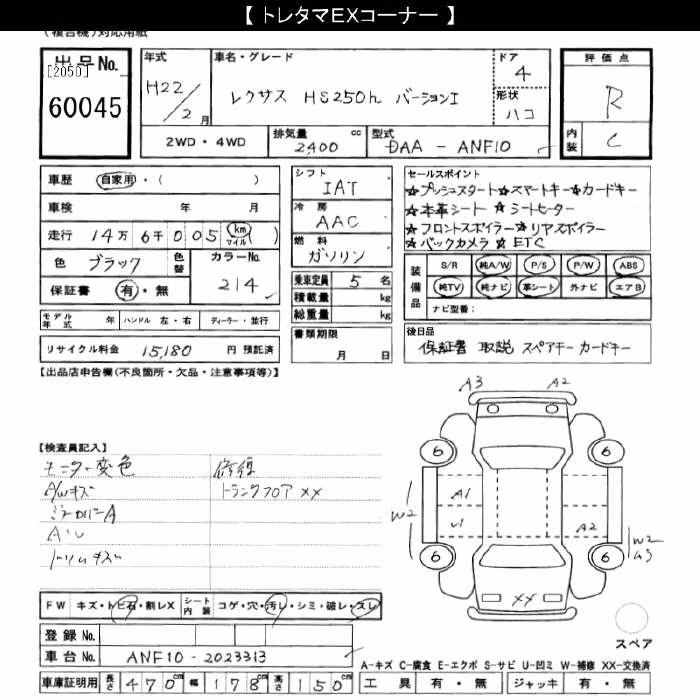 【 トレタマEXコーナー 】
(複合機)対応用紙
出品No.
[2050]
60045
年式
H22/2月
車名・グレード
レクサス HS250h バージョンI
ドア
4
形状
ハコ
2WD・4WD
排気量 2,400 cc
型式 DAA - ANF10
評価点
R
内装 C
車歴 自家用・( )
車検 年 月
走行 14万6千005 (km マイル)
色 ブラック
色替
カラーNo.
214
保証書 有・無
モデル年式 年 ハンドル 左・右 ディーラー・並行
リサイクル料金 15,180 円 預託済
シフト
IAT
冷房
AAC
燃料
ガソリン
乗車定員 5 名
積載量 kg
総重量 kg
書類期限
月 日
セールスポイント
☆プッシュスタート☆スマートキー☆カードキー
☆本革シート ☆シートヒーター
☆フロントスポイラー☆リヤスポイラー
☆バックカメラ ☆ETC
装備品
S/R 純A/W P/S P/W ABS
純TV 純ナビ 革シート 外ナビ エアB
ナビ型番:
後日品
保証書 取説 スペアキー カードキー
【出品店申告欄(不良箇所・欠品・注意事項等)】
【検査員記入】
モニター変色
A/Wキズ
修復
トランクフロア XX
A3 A2
6 6
A1
W2
A2
W2
6 6
XX
スペア
FW キズ・トビ石・割レX
シート内装 コゲ・穴・汚レ・シミ・破レ・スレ
登録 No.
車台 No. ANF10-2023313
車庫証明用 長さ 470cm 幅 178cm 高さ 150cm
A-キズ C-腐食 E-エクボ S-サビ U-凹ミ W-補修 XX-交換済
工具 有・無 ジャッキ 有・無